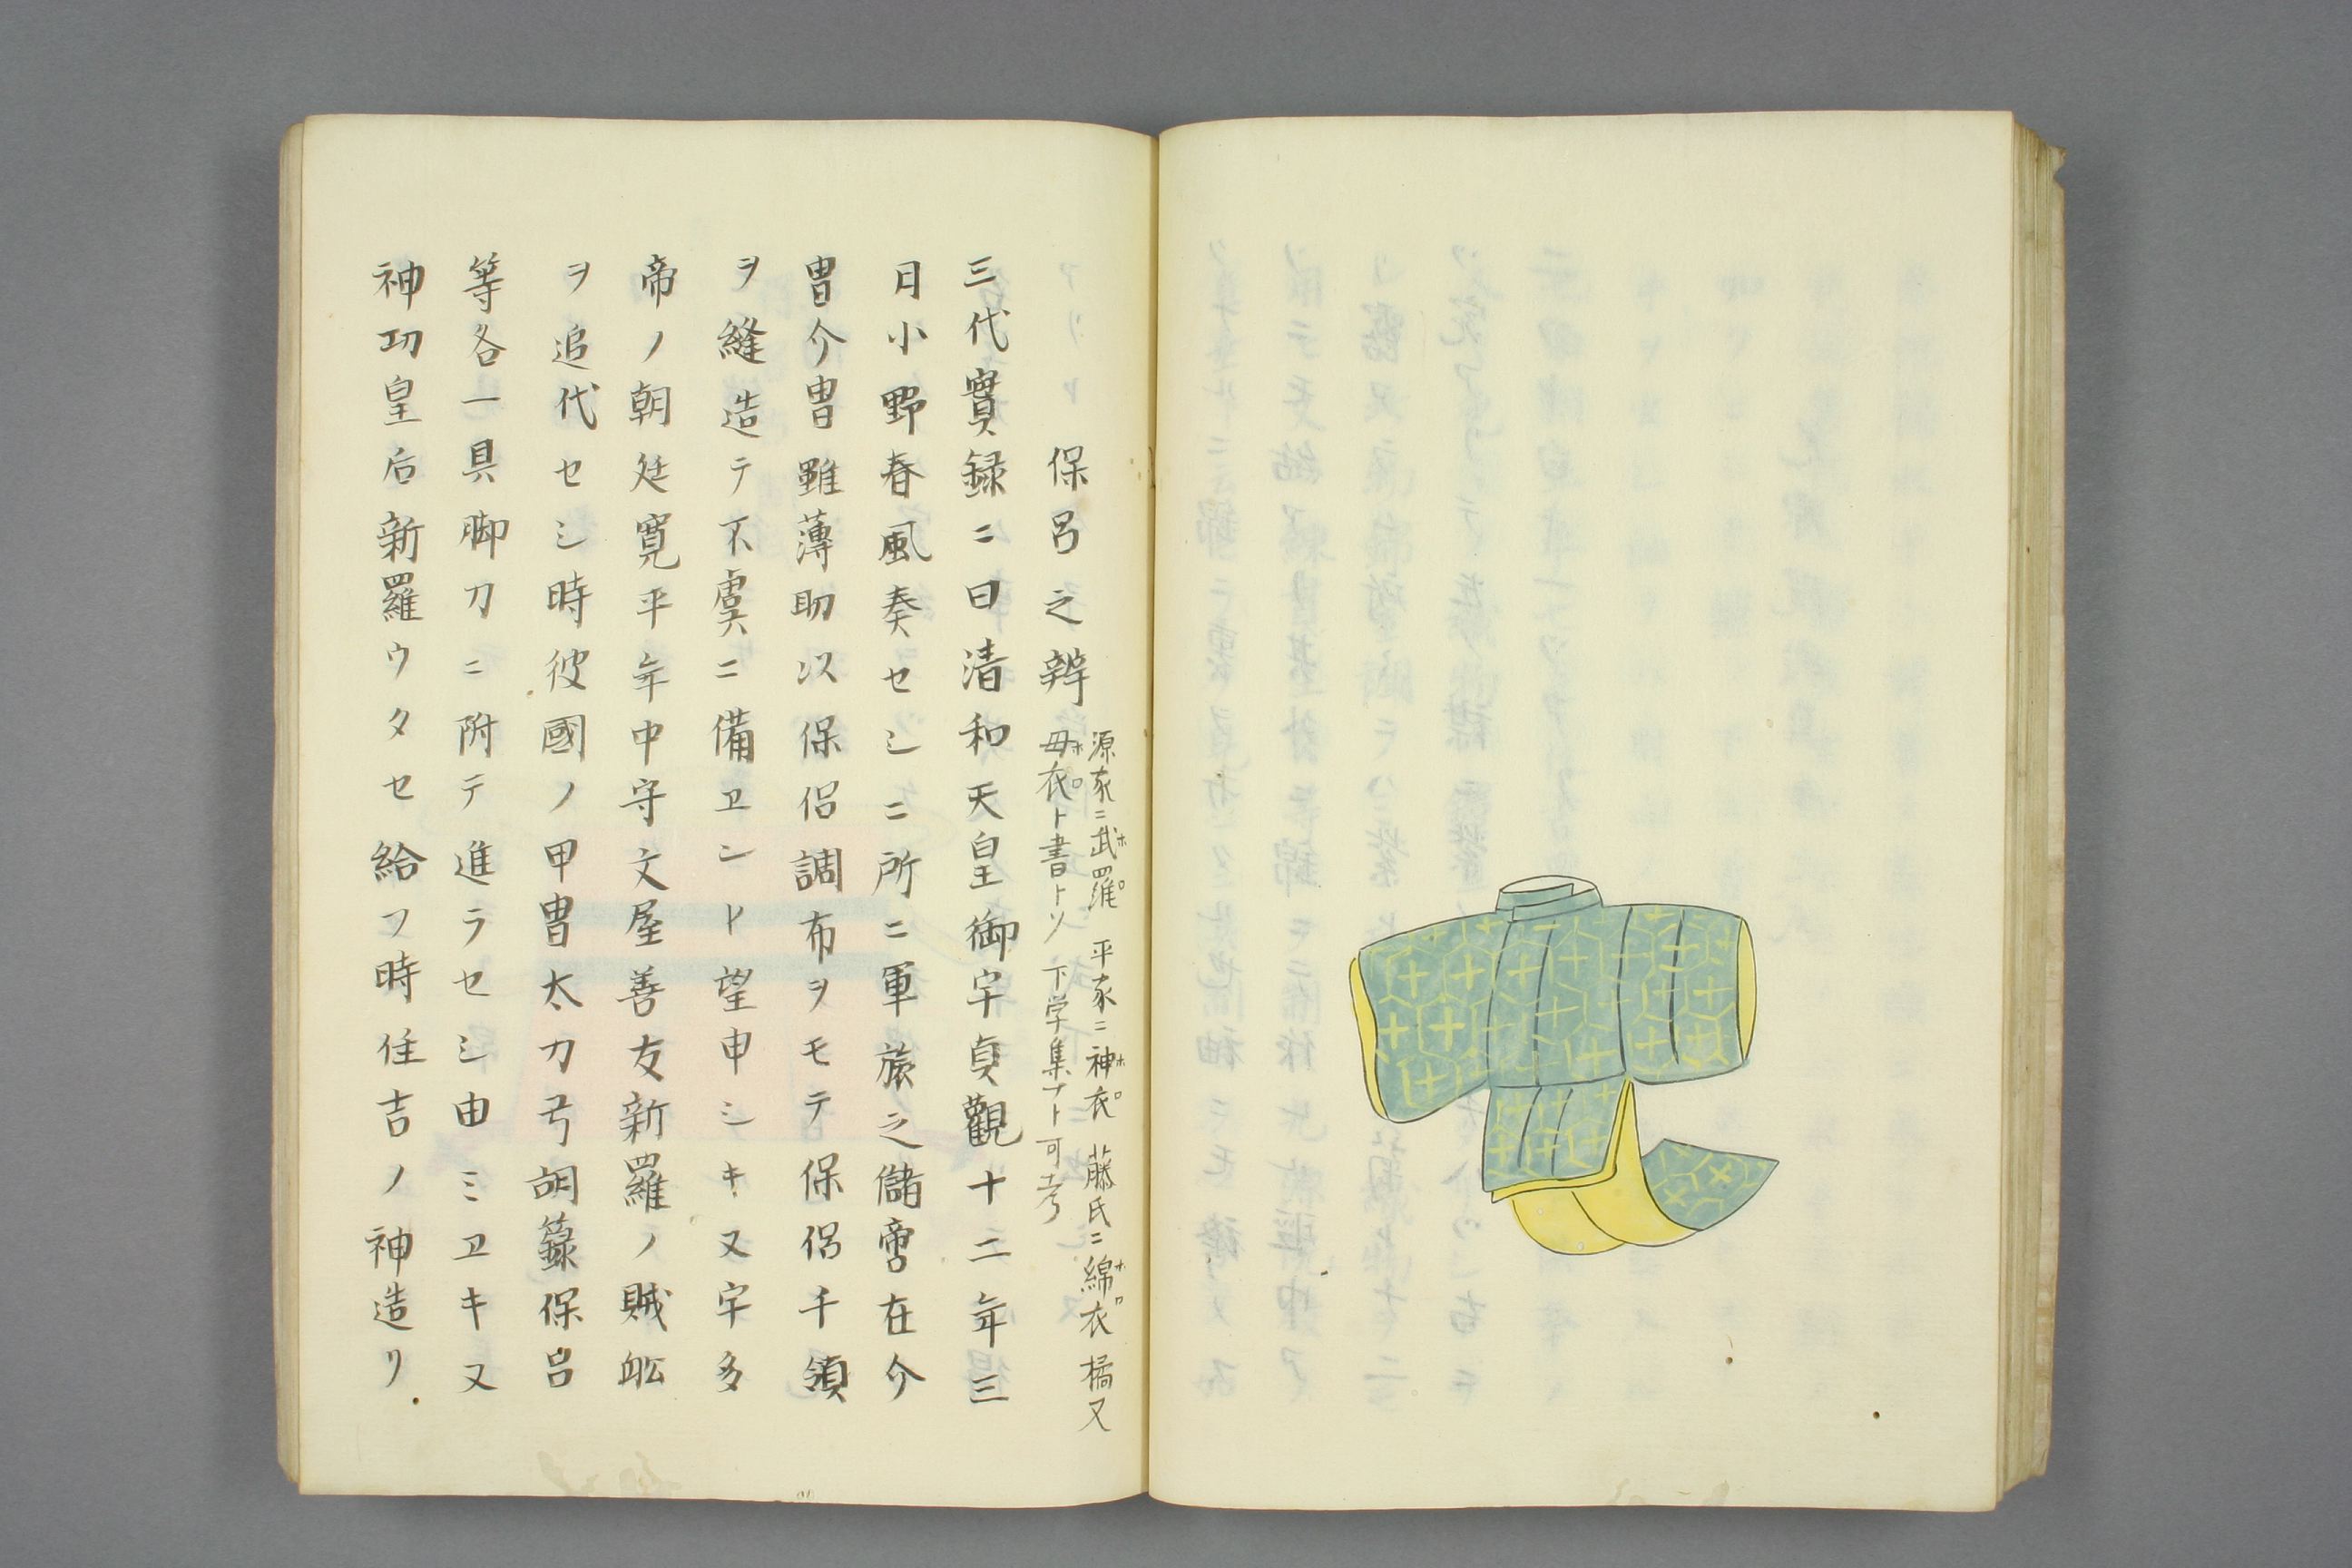 保呂之辨
源家ニ武羅 平家ニ神衣 藤氏ニ綿衣 橘又
母衣ト書トソ 下学集ナト可考
三代實録ニ曰清和天皇御宇貞觀十二年三
日小野春風奏セシニ所ニ軍旅之儲啻在介
冑介冑雖薄助以保侶調布ヲモテ保侶千領
ヲ縫造テ不虞ニ備ヱント望申シキ又宇多
帝ノ朝廷寛平年中守文屋善友新羅ノ賊舩
ヲ追代セシ時彼國ノ甲冑太刀弓胡籙保呂
等各一具脚刀ニ附テ進ラセシ由ミヱキ又
神功皇后新羅ウタセ給フ時住吉ノ神造リ